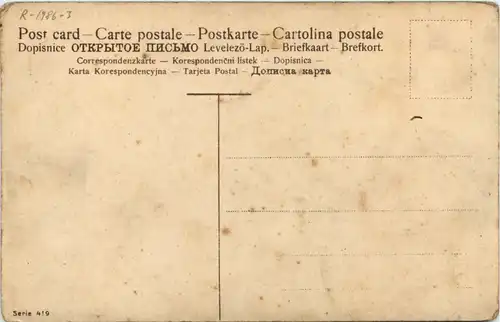 R-1986-3
Post card – Carte postale – Postkarte – Cartolina postale
Dopisnice ОТКРЫТОЕ ПИСЬМО Levelező-Lap. – Briefkaart – Brefkort.
Correspondenzkarte – Korespondenčni listek – Dopisnica –
Karta Korespondencyjna – Tarjeta Postal – Дописна карта
Serie 419